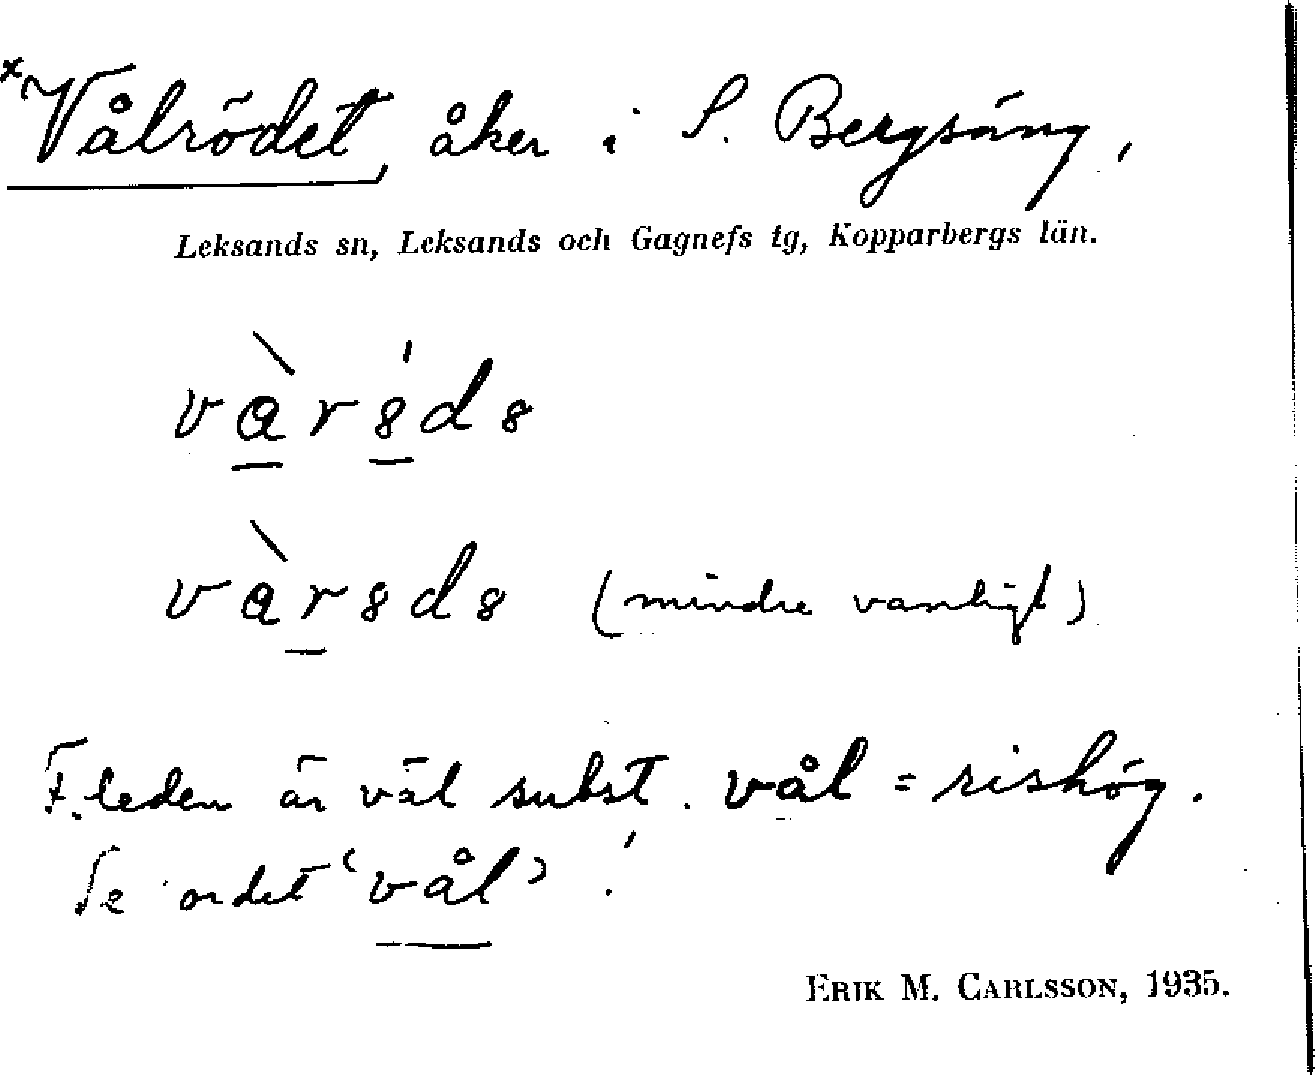 *Vålrödet, åker i S. Bergsäng,
Leksands sn, Leksands och Gagnefs tg, Kopparbergs län.
(mindre vanligt)
F. leden är väl subst. vål = rishög.
Se ordet 'vål' !
ERIK M. CARLSSON, 1935.